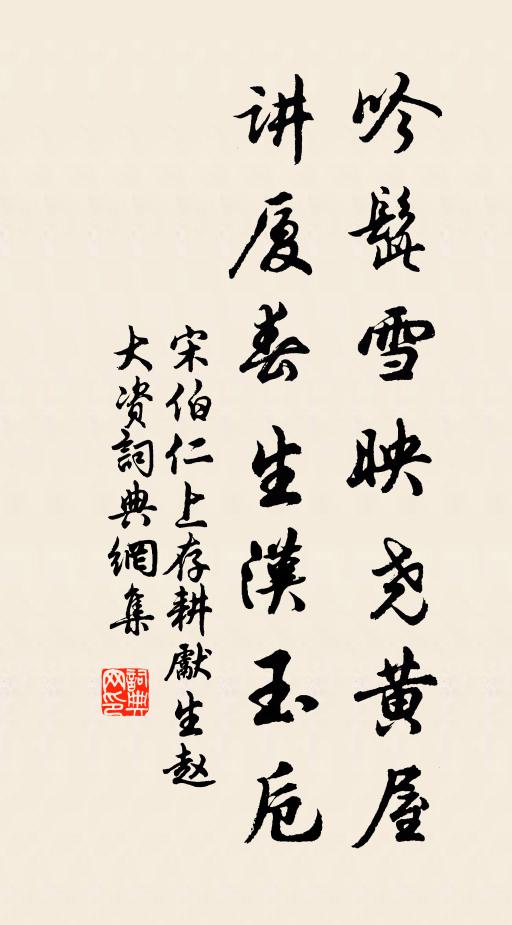 吟髭雪映尧黄屋
讲厦春生漢玉卮
宋伯仁上存耕獻生赵
大资詞典網集
詞典网印